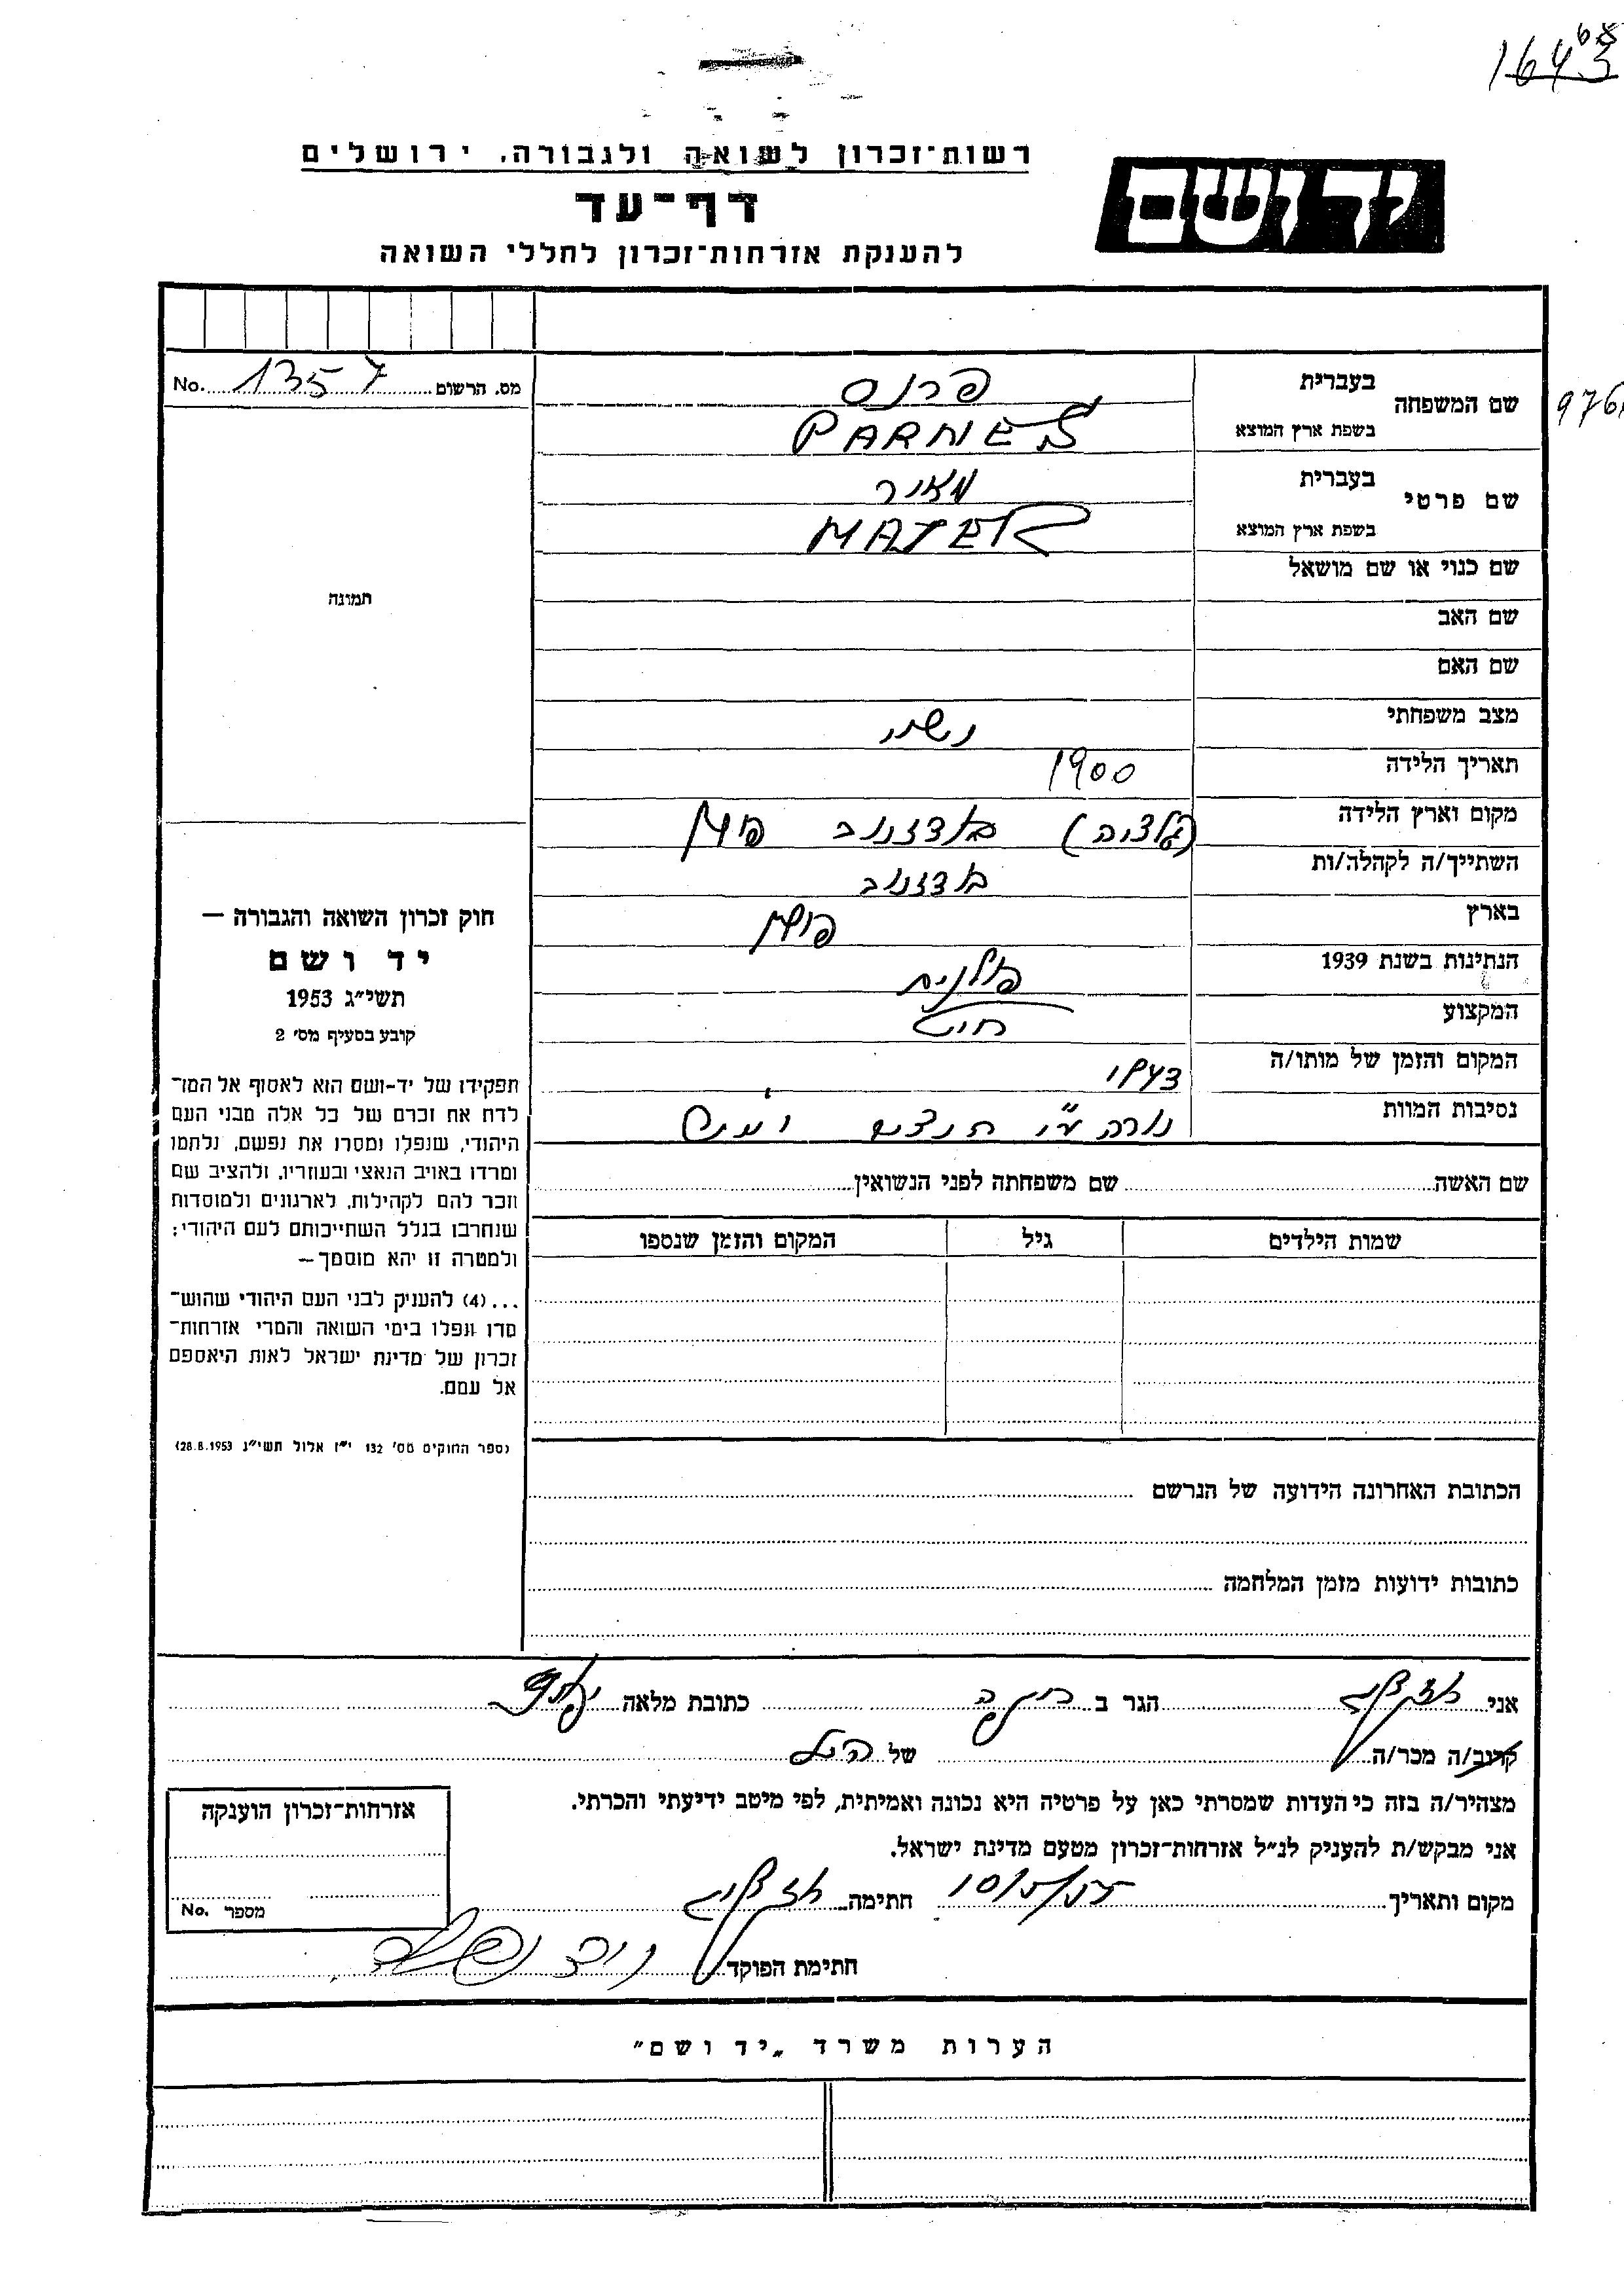 1643
68
רשות־זכרון לשואה ולגבורה, ירושלים
יד ושם
דף־עד
להענקת אזרחות־זכרון לחללי השואה
מס. הרשום 1357 No.
שם המשפחה בעברית פרנס
976
בשפת ארץ המוצא PARNES
שם פרטי בעברית מאיר
בשפת ארץ המוצא MAJER
תמונה
שם כנוי או שם מושאל
שם האב
שם האם
מצב משפחתי נשוי
תאריך הלידה 1900
מקום וארץ הלידה פולין
השתייך/ה לקהלה/ות
בארץ פולין
הנתינות בשנת 1939 פולנית
המקצוע
המקום והזמן של מותו/ה 1943
נסיבות המוות נורה ע"י
שם האשה שם משפחתה לפני הנשואין
שמות הילדים גיל המקום והזמן שנספו
חוק זכרון השואה והגבורה —
יד ושם
תשי״ג 1953
קובע בסעיף מס׳ 2
תפקידו של יד-ושם הוא לאסוף אל המו־
לדת את זכרם של כל אלה מבני העם
היהודי, שנפלו ומסרו את נפשם, נלחמו
ומרדו באויב הנאצי ובעוזריו, ולהציב שם
וזכר להם לקהילות, לארגונים ולמוסדות
שנחרבו בגלל השתייכותם לעם היהודי;
ולמטרה זו יהא מוסמך —
...(4) להעניק לבני העם היהודי שהוש־
מדו ונפלו בימי השואה והמרי אזרחות־
זכרון של מדינת ישראל לאות היאספם
אל עמם.
(ספר החוקים מס׳ 132 י״ז אלול תשי״ג 28.8.1953)
הכתובת האחרונה הידועה של הנרשם
כתובות ידועות מזמן המלחמה
אני הגר ב כתובת מלאה
קרוב/ה מכר/ה של
מצהיר/ה בזה כי העדות שמסרתי כאן על פרטיה היא נכונה ואמיתית, לפי מיטב ידיעתי והכרתי.
אני מבקש/ת להעניק לנ״ל אזרחות־זכרון מטעם מדינת ישראל.
מקום ותאריך 10/5/55 חתימה
חתימת הפוקד
אזרחות־זכרון הוענקה
מספר No.
הערות משרד „יד ושם״